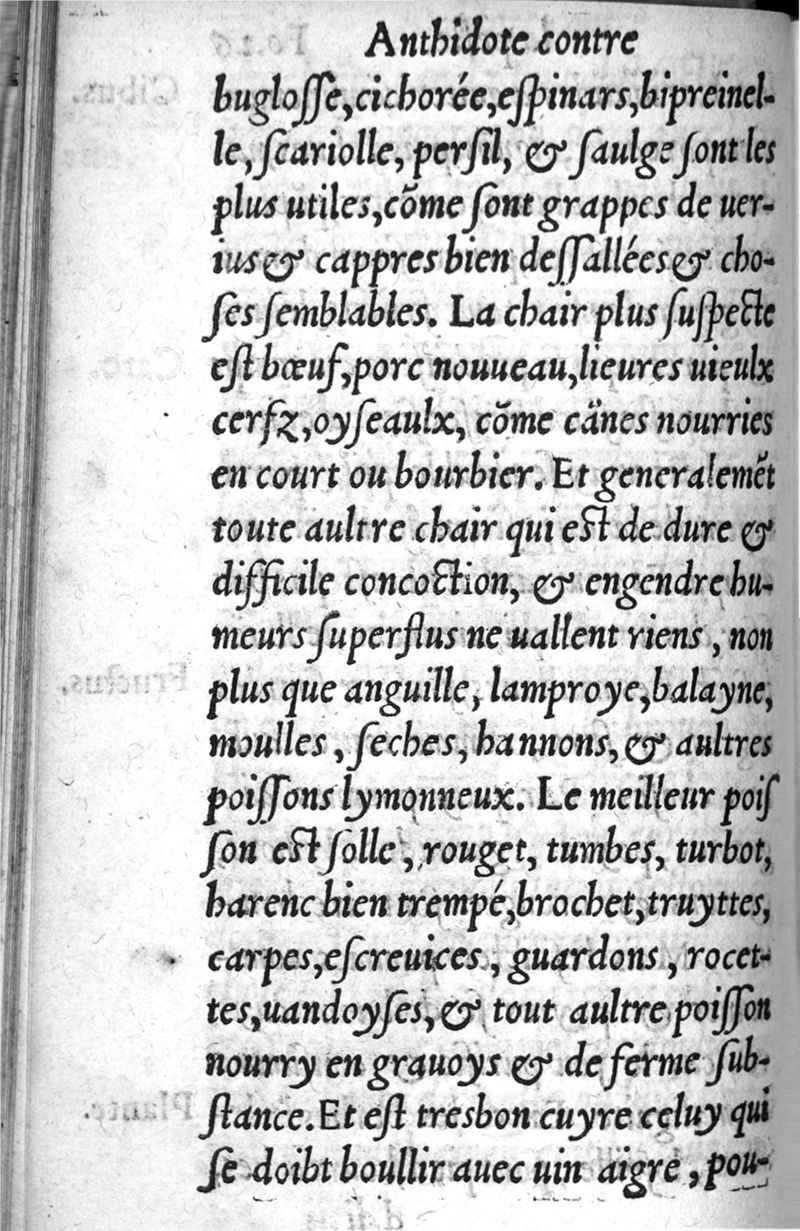 Anthidote contre
buglosse, cichorée, espinars, bipreinel-
le, scariolle, persil, & saulge sont les
plus utiles, cõme sont grappes de uer-
ius & cappres bien dessallées & cho-
ses semblables. La chair plus suspecte
est bœuf, porc nouueau, lieures uieulx
cerfz, oyseaulx, cõme cānes nourries
en court ou bourbier. Et generalemēt
toute aultre chair qui est de dure &
difficile concoction, & engendre hu-
meurs superflus ne uallent riens, non
plus que anguille, lamproye, balayne,
moulles, seches, hannons, & aultres
poissons lymonneux. Le meilleur pois
son est solle, rouget, tumbes, turbot,
harenc bien trempé, brochet, truyttes,
carpes, escreuices, guardons, rocet-
tes, uandoyses, & tout aultre poisson
nourry en grauoys & de ferme sub-
stance. Et est tresbon cuyre celuy qui
se doibt boullir auec uin aigre, pou-